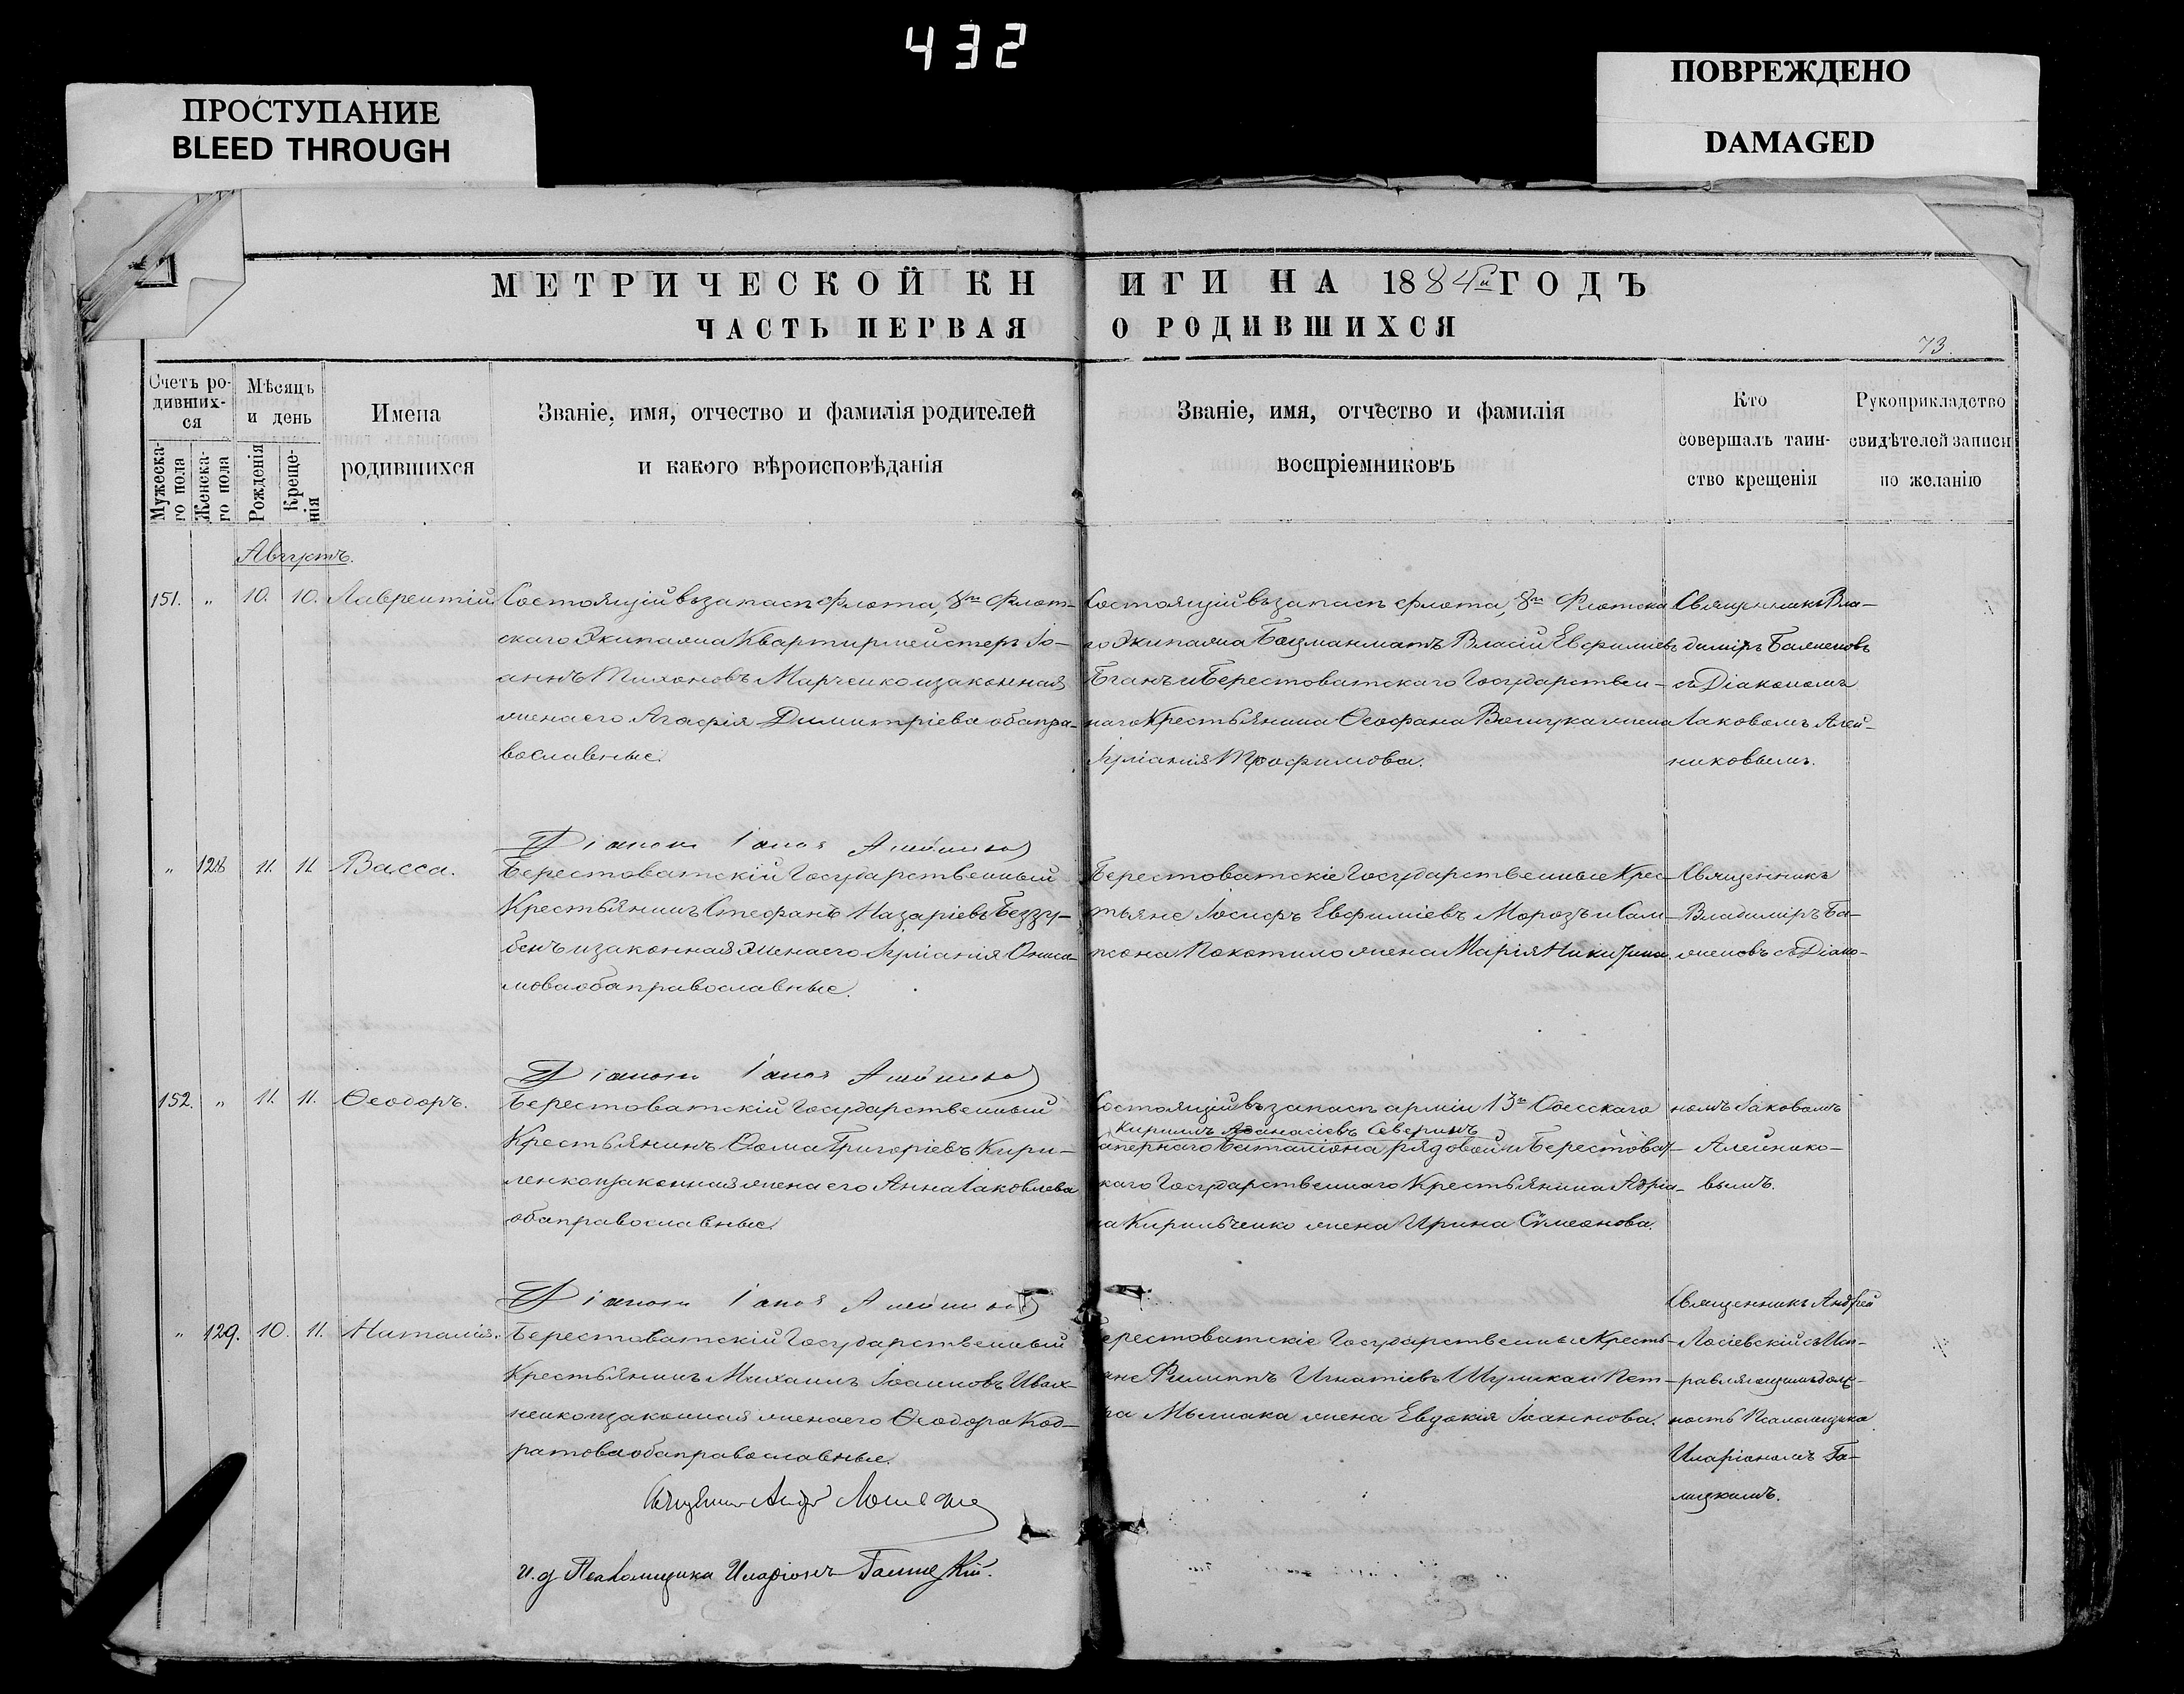 432
ПРОСТУПАНИЕ
BLEED THROUGH
ПОВРЕЖДЕНО
DAMAGED
МЕТРИЧЕСКОЙ КНИГИ НА 1884й ГОДЪ
ЧАСТЬ ПЕРВАЯ О РОДИВШИХСЯ
73.
Счетъ ро-
дивших-
ся
Мужеска-
го пола
Женска-
го пола
Мѣсяцъ
и день
Рожденія
Креще-
нія
Имена
родившихся
Званіе, имя, отчество и фамилія родителей
и какого вѣроисповѣданія
Званіе, имя, отчество и фамилія
воспріемниковъ
Кто
совершалъ таин-
ство крещенія
Рукоприкладство
свидѣтелей записи
по желанію
Августъ.
151. " 10. 10. Лаврентій
Состоящій въ запасѣ флота, 8го Флот-
скаго Экипажа Квартирмейстеръ Іо-
аннъ Тихоновъ Марченко и законная
жена его Агафія Димитріева оба пра-
вославные.
Состоящій въ запасѣ флота, 8го Флотска
го Экипажа Боцманматъ Власій Евфиміевъ
Бганъ и Берестоватскаго Государствен-
наго Крестьянина Ѳеофана жена
Іуліанія Трофимова.
Священникъ Вла-
димиръ Баженовъ
съ Діакономъ
Іаковомъ Алей-
никовымъ.
Діаконъ Іаковъ Алейниковъ
" 128 11. 11. Васса.
Берестоватскій Государственный
Крестьянинъ Стефанъ Назаріевъ Беззу-
бенъ и законная жена его Іуліанія Ониси-
мова оба православные.
Берестоватскіе Государственные Крес-
тьяне Іосифъ Евфиміевъ Морозъ и Сам-
псона Покотило жена Марія Никитина.
Священникъ
Владиміръ Ба-
женовъ съ Діако-
Діаконъ Іаковъ Алейниковъ
152. " 11. 11. Ѳеодоръ.
Берестоватскій Государственный
Крестьянинъ Ѳома Григоріевъ Кири-
ленко и законная жена его Анна Іаковлева
оба православные.
Состоящій въ запасѣ арміи 13го Одесскаго
Кириллъ Аѳанасіевъ Северинъ
Сапернаго Баталіона рядовой и Берестоват-
скаго Государственнаго Крестьянина Адріа-
на Кирильченко жена Ирина Сѵмеонова.
номъ Іаковомъ
Алейнико-
вымъ.
Діаконъ Іаковъ Алейниковъ
" 129. 10. 11. Наталія.
Берестоватскій Государственный
Крестьянинъ Михаилъ Іоанновъ Ивах-
ненко и законная жена его Ѳеодора Код-
ратова оба православные.
Берестоватскіе Государственные Кресть-
яне Филиппъ Игнатіевъ Шулика и Пет-
ра жена Евдокія Іоаннова.
Священникъ Андрей
Лосіевскій съ Исп-
равляющимъ долж-
ность Псаломщика
Иларіономъ Га-
лицкимъ.
Священникъ Андрей Лосіевскій
и.д Псаломщика Иларіонъ Галицкій.